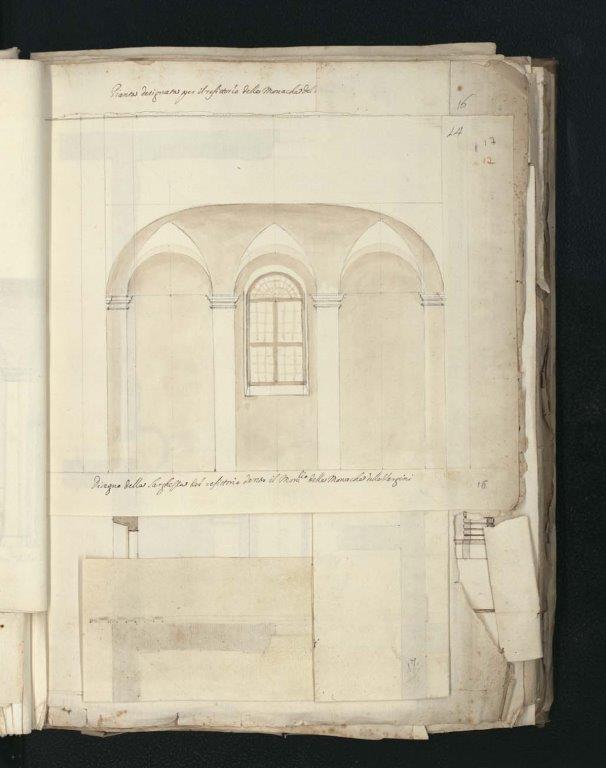 Pianta designata per il refettorio delle Monache del
16
14
17
12
Disegno della larghezza del refettorio dentro il Mon.rio delle Monache delle Vergini
18
17